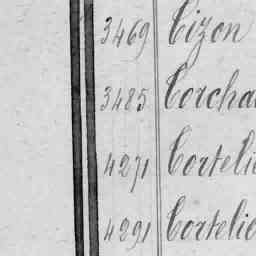 3469 Cizon
3485 Corcha
4271 Cortelie
4291 Cortelie